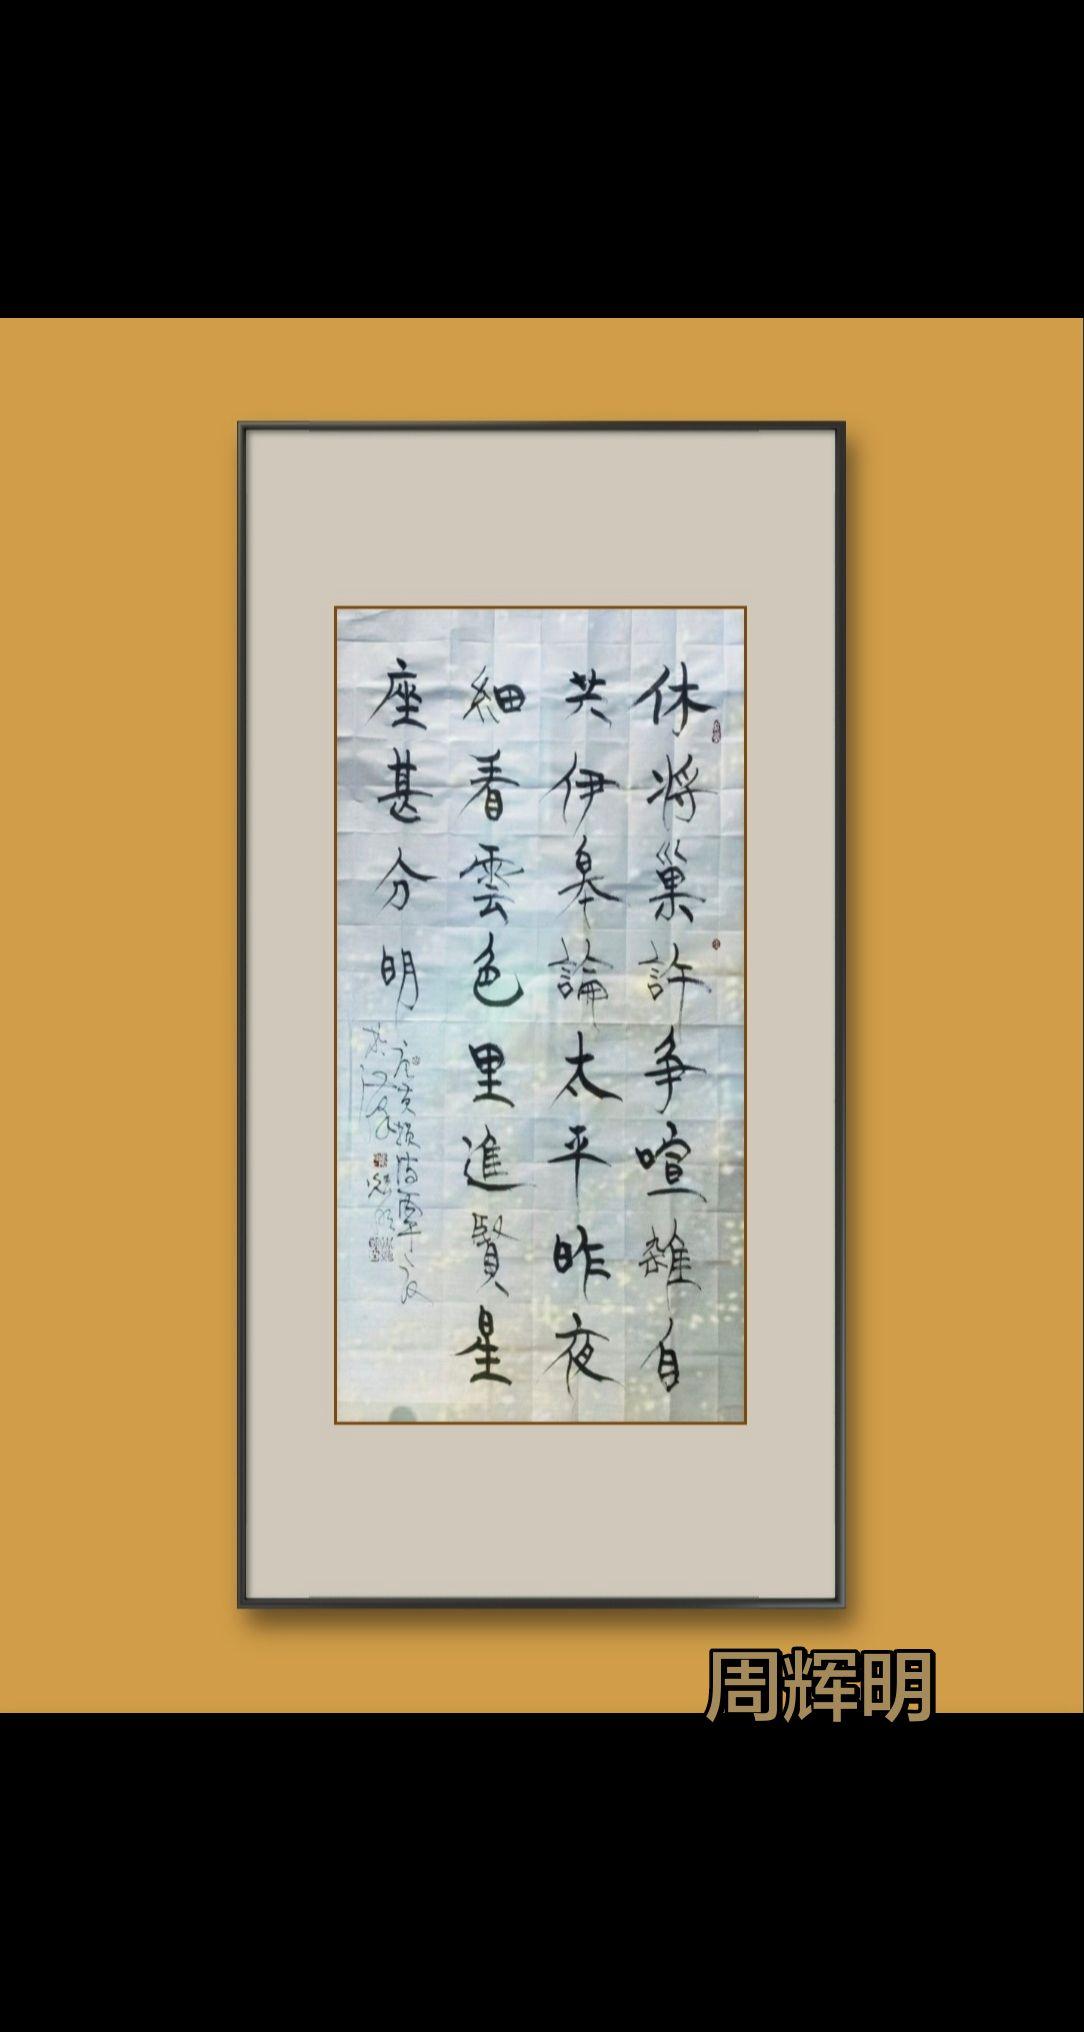 休将巢許争喧雜自
共伊皋論太平昨夜
細看雲色里進賢星
座甚分明
周辉明